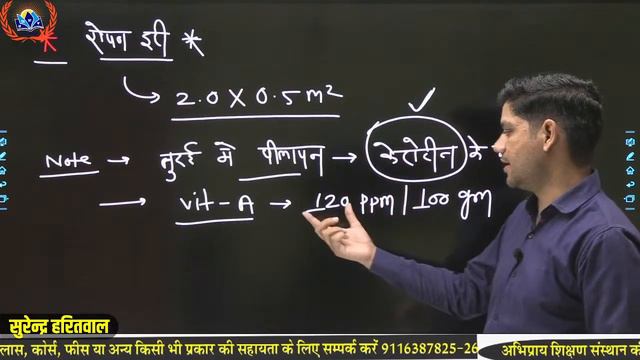 * रोपन दूरी *
→ 2.0 X 0.5 m²
Note → तुरई में पीलापन → केरोटीन के
→ Vit-A → 120 ppm / 100 gm
सुरेन्द्र हरितवाल
लास, कोर्स, फीस या अन्य किसी भी प्रकार की सहायता के लिए सम्पर्क करें 9116387825-26 अभिप्राय शिक्षण संस्थान को